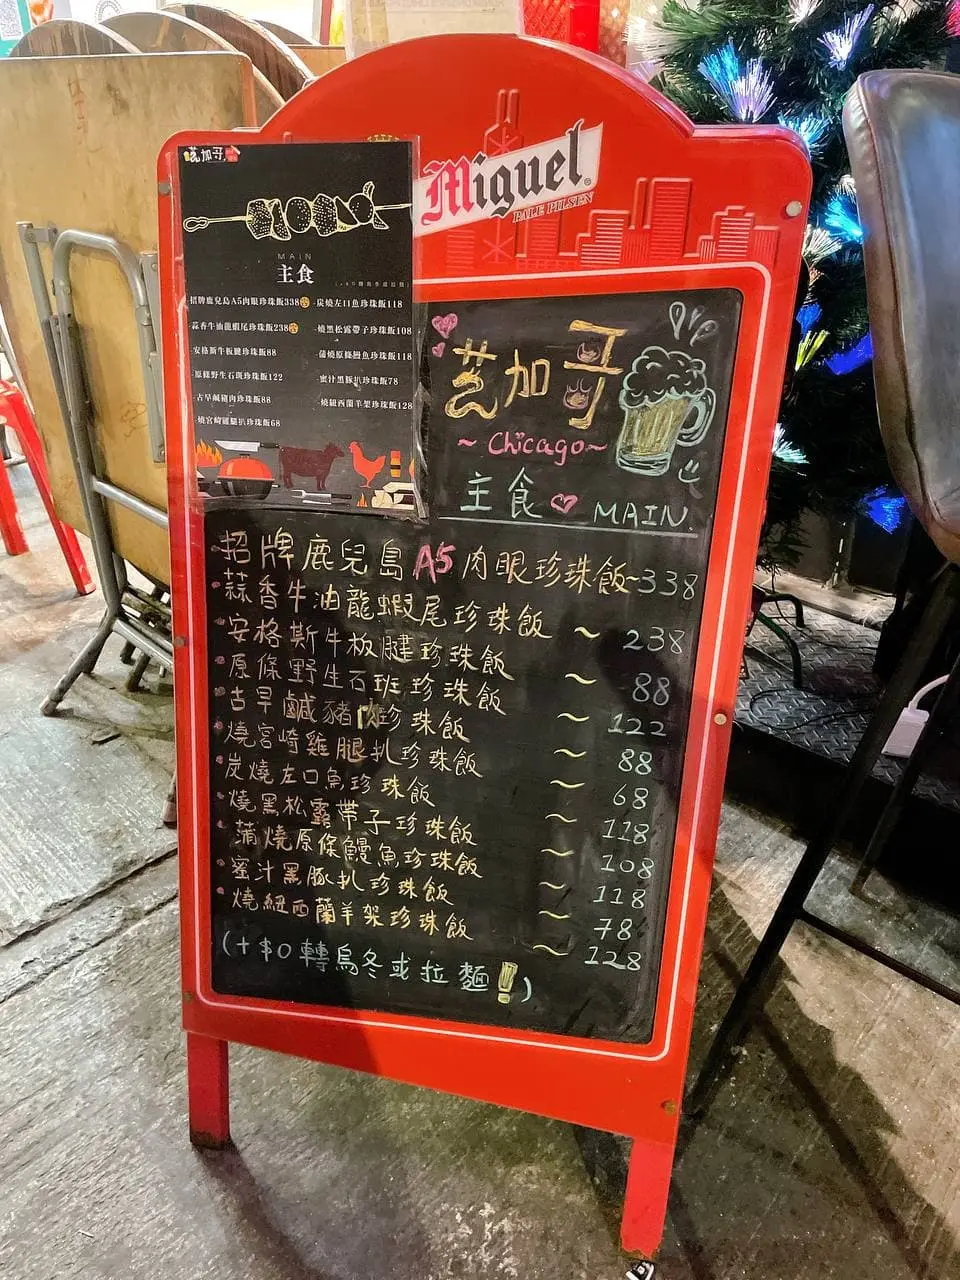 芝加哥
MAIN
主食
·招牌鹿兒島A5肉眼珍珠飯338
·蒜香牛油龍蝦尾珍珠飯238
·安格斯牛板腱珍珠飯88
·原條野生石斑珍珠飯122
·古早鹹豬肉珍珠飯88
·燒宮崎雞腿扒珍珠飯68
·炭燒左口魚珍珠飯118
·燒黑松露帶子珍珠飯108
·蒲燒原條鰻魚珍珠飯118
·蜜汁黑豚扒珍珠飯78
·燒紐西蘭羊架珍珠飯128
Miguel
PALE PILSEN
芝加哥
~ Chicago ~
主食 MAIN.
招牌鹿兒島A5肉眼珍珠飯~338
蒜香牛油龍蝦尾珍珠飯 ~ 238
安格斯牛板腱珍珠飯 ~ 88
原條野生石班珍珠飯 ~ 122
古早鹹豬肉珍珠飯 ~ 88
燒宮崎雞腿扒珍珠飯 ~ 68
炭燒左口魚珍珠飯 ~ 118
燒黑松露帶子珍珠飯 ~ 108
蒲燒原條鰻魚珍珠飯 ~ 118
蜜汁黑豚扒珍珠飯 ~ 78
燒紐西蘭羊架珍珠飯 ~ 128
(+$0轉烏冬或拉麵!)